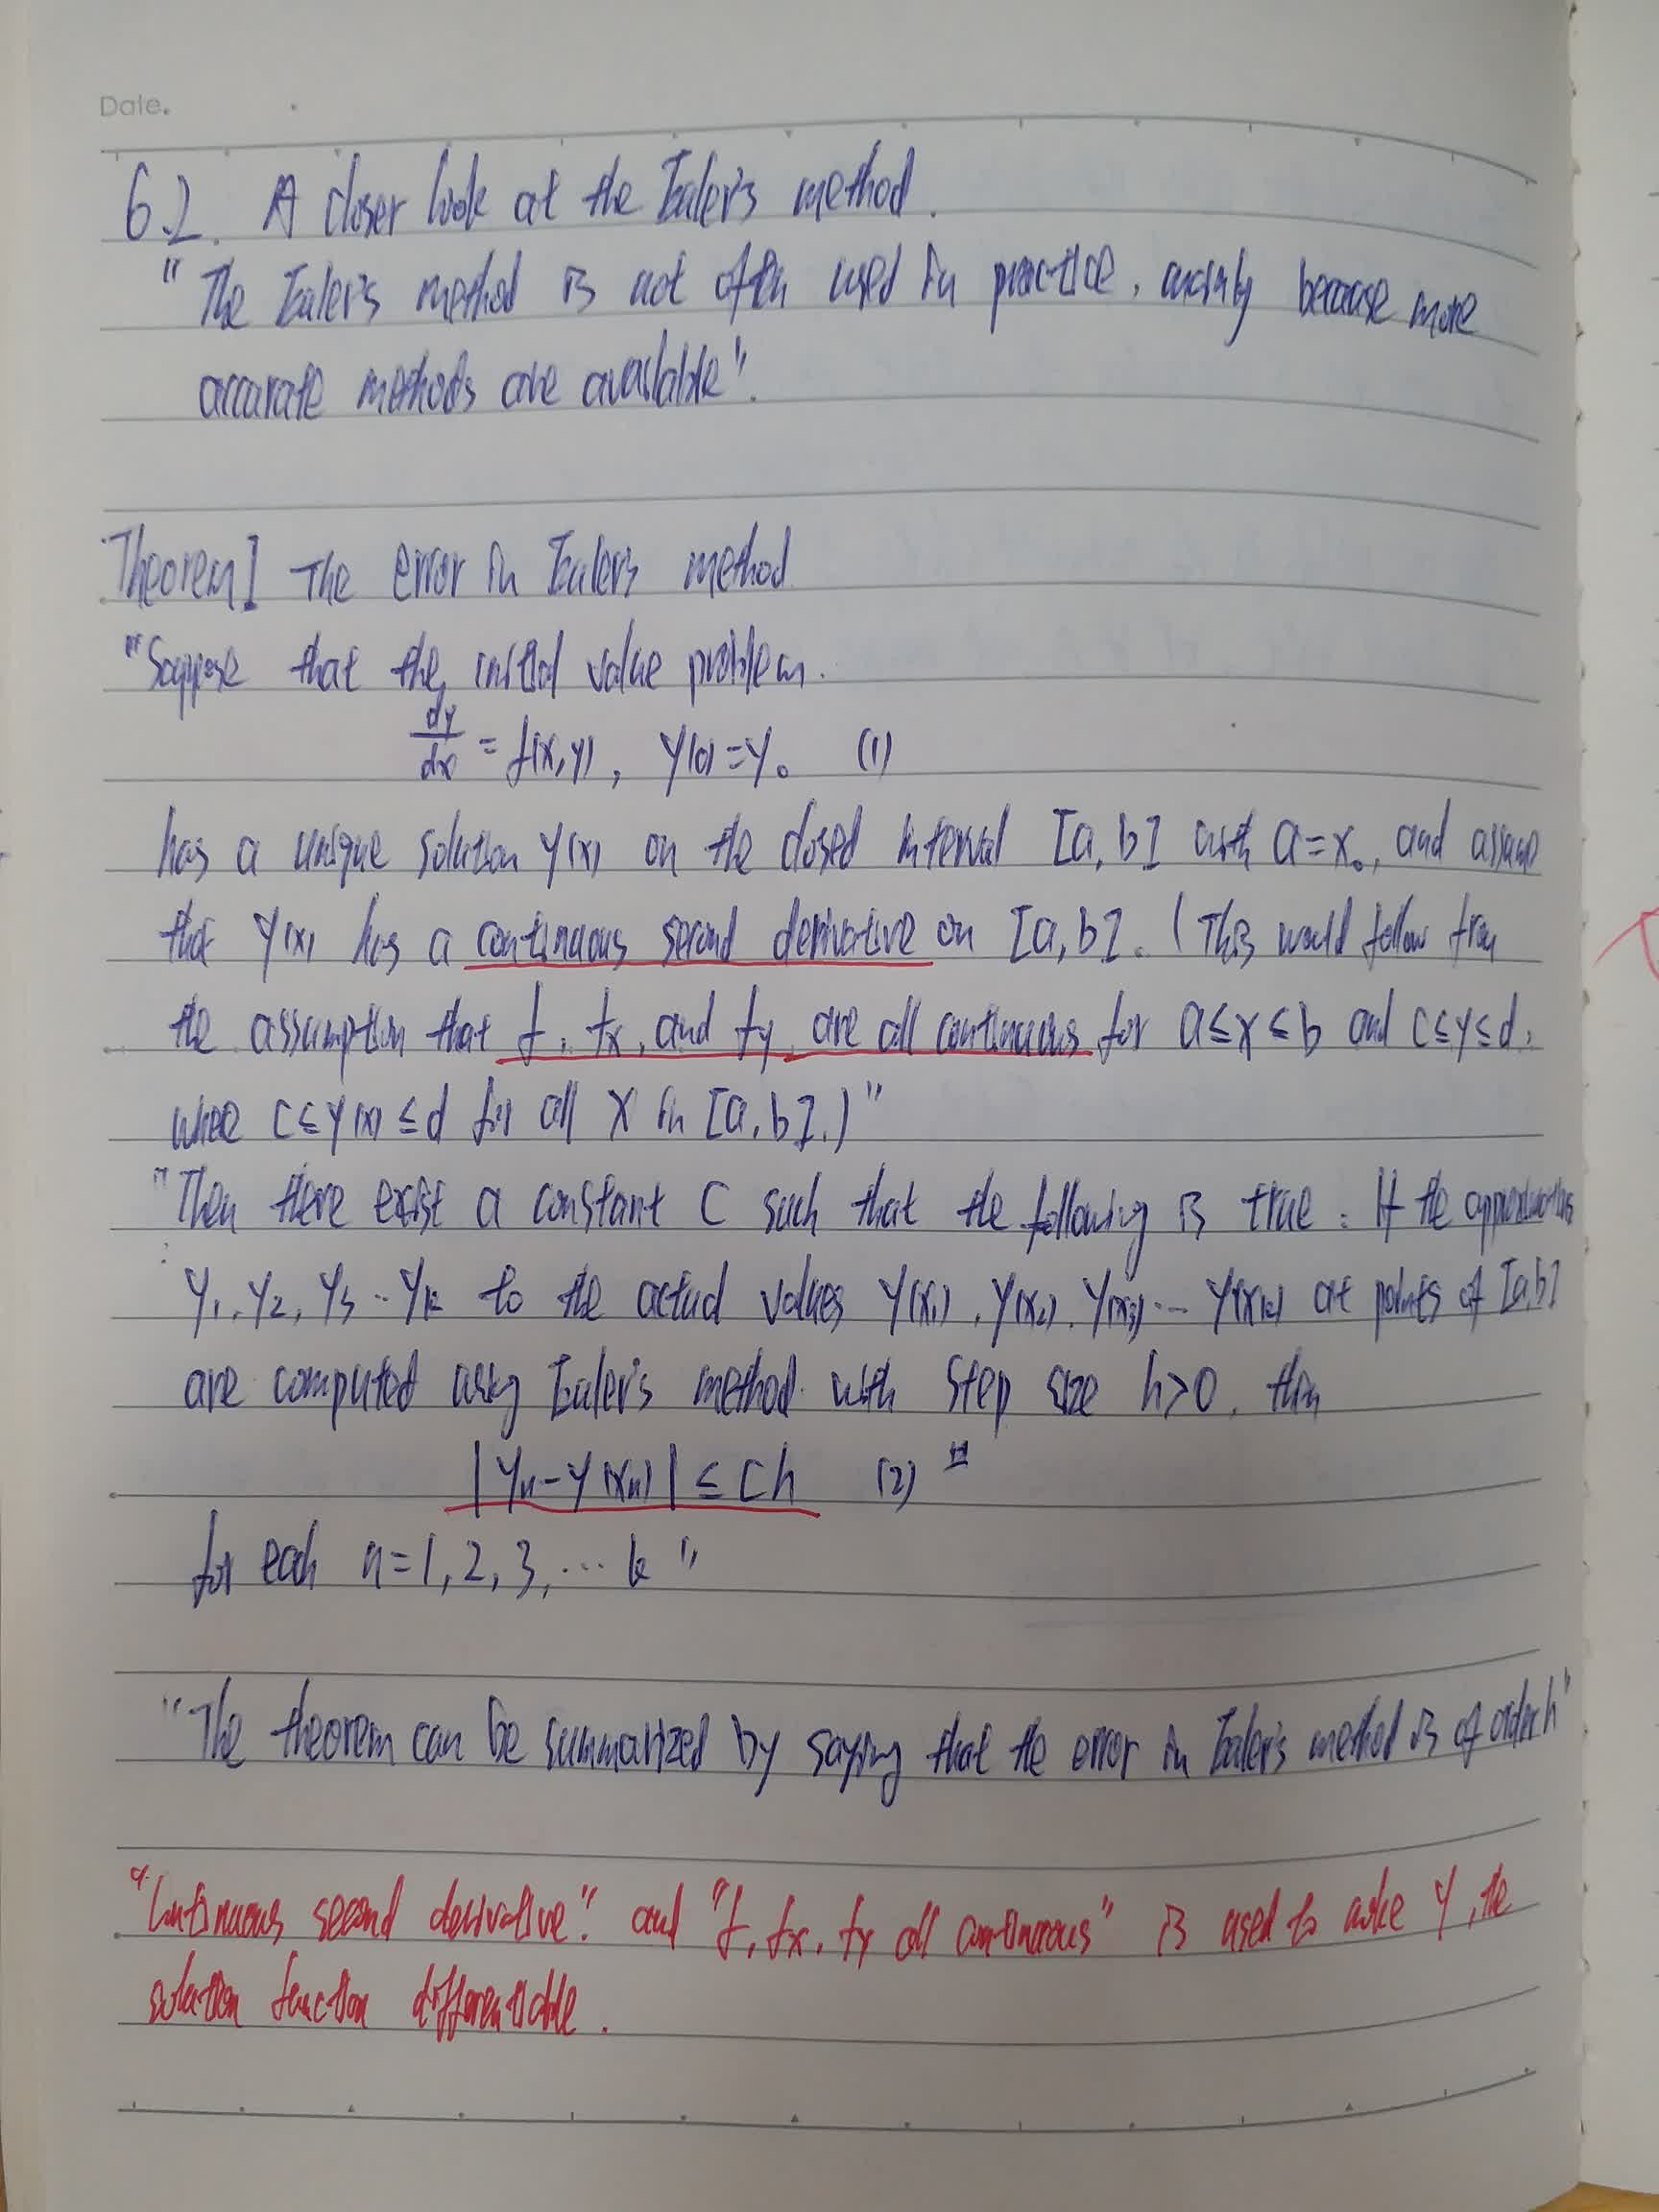 Date.
6.2. A closer look at the Euler's method.
"The Euler's method is not often used in practice, mainly because more
accurate methods are available".
Theorem 1 The error in Euler's method
"Suppose that the initial value problem.
dy/dx = f(x,y), y(0)=y₀ (1)
has a unique solution y(x) on the closed interval [a,b] with a=x₀, and assume
that y(x) has a continuous second derivative on [a,b]. (This would follow from
the assumption that f, fx, and fy are all continuous for a≤x≤b and c≤y≤d,
where c≤y(x)≤d for all x in [a,b].)"
"Then there exist a constant C such that the following is true: If the approximations
y₁, y₂, y₃ ... yₖ to the actual values y(x₁), y(x₂), y(x₃) ... y(xₖ) at points of [a,b]
are computed using Euler's method with step size h>0, then
|yₙ-y(xₙ)| ≤ Ch (2)
for each n=1,2,3,...k"
"The theorem can be summarized by saying that the error in Euler's method is of order h"
"Continuous second derivative" and "f, fx, fy all continuous" is used to make y, the
solution function differentiable.